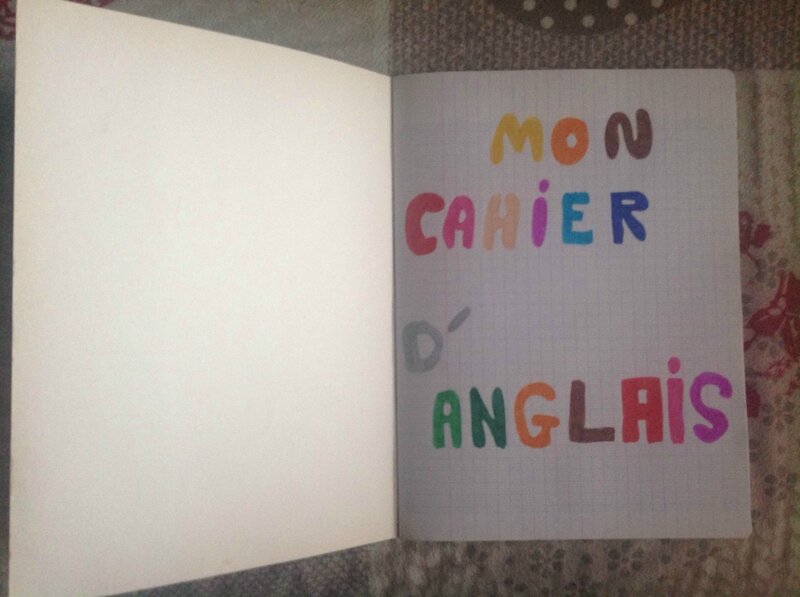 MON
CAHiER
D'
ANGLAiS